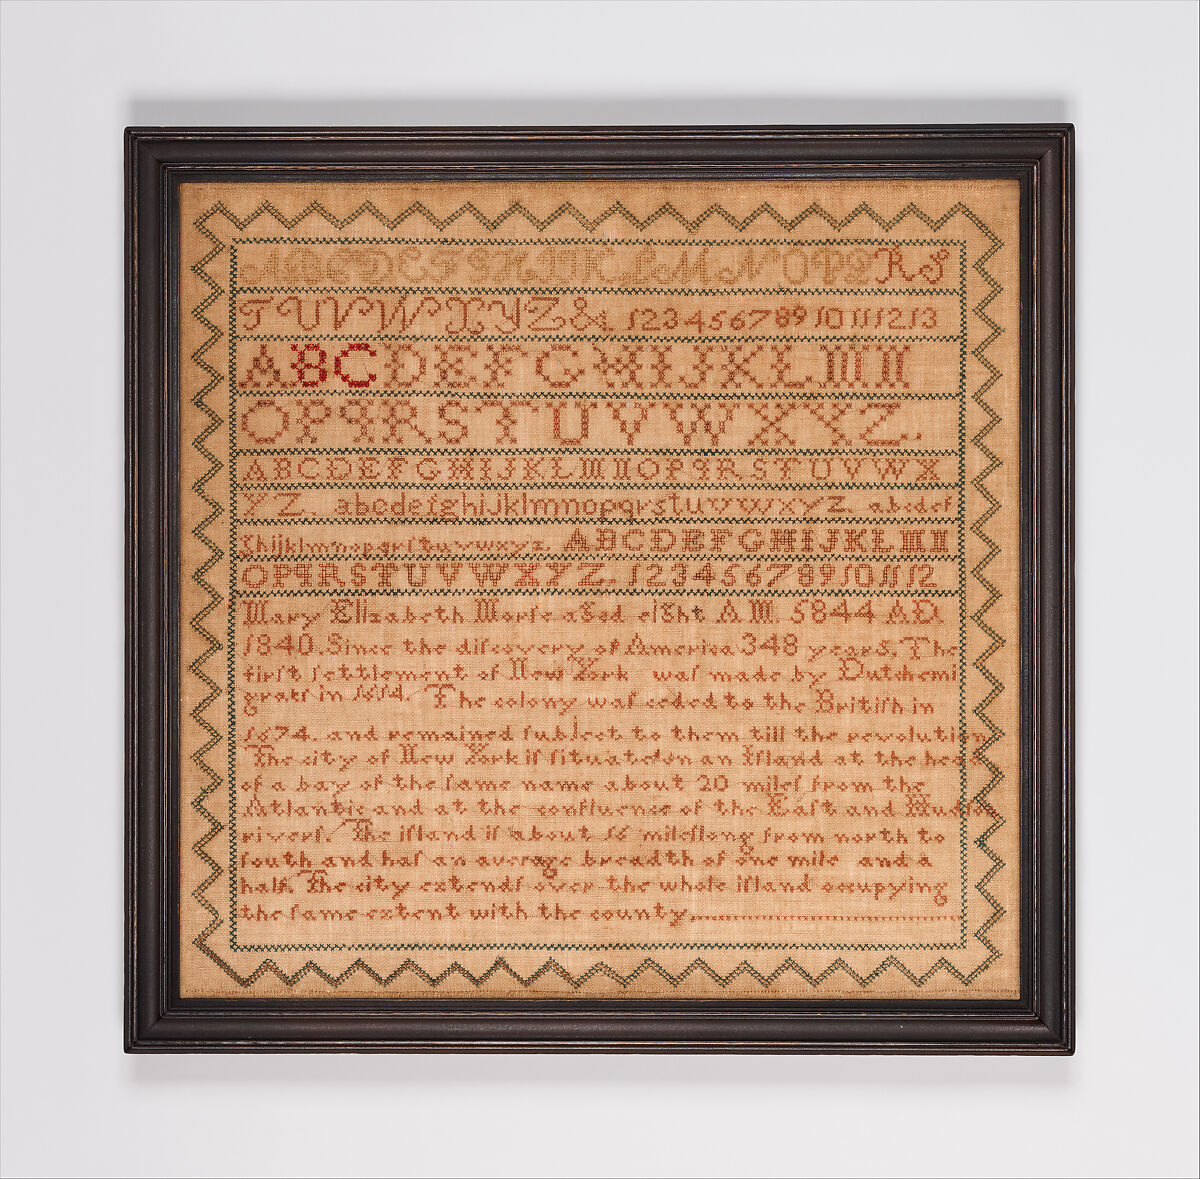 A B C D E F G H I J K L M N O P Q R S
T U V W X Y Z & 1 2 3 4 5 6 7 8 9 10 11 12 13
A B C D E F G H I J K L M N
O P Q R S T U V W X Y Z .
A B C D E F G H I J K L M N O P Q R S T U V W X
Y Z . a b c d e f g h i j k l m n o p q r s t u v w x y z . a b c d e f
g h i j k l m n o p q r ſ t u v w x y z . A B C D E F G H I J K L M N
O P Q R S T U V W X Y Z . 1 2 3 4 5 6 7 8 9 10 11 12
Mary Elizabeth Morſe aged eight A M. 5844 AD
1840. Since the diſcovery of America 348 years. The
firſt ſettlement of New York waſ made by Dutchemi
gratſ in 1614. The colony waſ ceded to the Britiſh in
1674. and remained ſubject to them till the revolution
The city of New York iſ ſituated on an Iſland at the head
of a bay of the ſame name about 20 mileſ from the
Atlantic and at the confluence of the Eaſt and Hudſon
riverſ. The iſland iſ about 16 mileſ long from north to
ſouth and haſ an average breadth of one mile and a
half. The city extendſ over the whole iſland occupying
the ſame extent with the county,